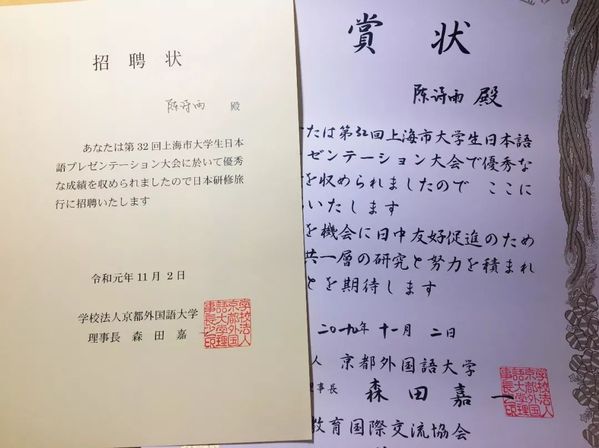 招聘状
陈诗雨 殿
あなたは第32回上海市大学生日本
語プレゼンテーション大会に於いて優秀
な成績を収められましたので日本研修旅
行に招聘いたします
令和元年11月2日
学校法人京都外国語大学
理事長 森田嘉一
学校法人
京都外国
語大学理
事長之印
賞状
陈诗雨 殿
たは第32回上海市大学生日本語
ゼンテーション大会で優秀な
を収められましたので ここに
いたします
を機会に日中友好促進のため
共一層の研究と努力を積まれ
とを期待します
二〇一九年十一月二日
人 京都外国語大学
事長 森田嘉一
学校法人
京都外国
語大学理
事長之印
教育国際交流協会